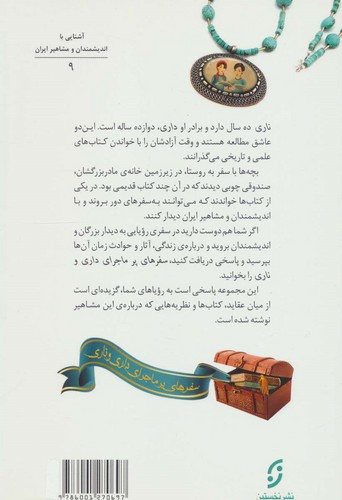 آشنایی با
اندیشمندان و مشاهیر ایران
۹
ناری ده سال دارد و برادر او داری، دوازده ساله است. این‌دو
عاشق مطالعه هستند و وقت آزادشان را با خواندن کتاب‌های
علمی و تاریخی می‌گذرانند.
بچه‌ها با سفر به روستا، در زیرزمین خانه‌ی مادربزرگشان،
صندوقی چوبی دیدند که در آن چند کتاب قدیمی بود. در یکی
از کتاب‌ها خواندند که می‌توانند به‌سفرهای دور بروند و با
اندیشمندان و مشاهیر ایران دیدار کنند.
اگر شما هم دوست دارید در سفری رؤیایی به دیدار بزرگان و
اندیشمندان بروید و درباره‌ی زندگی، آثار و حوادث زمان آن‌ها
بپرسید و پاسخی دریافت کنید، سفرهای پر ماجرای داری و
ناری را بخوانید.
این مجموعه پاسخی است به رؤیاهای شما، گزیده‌ای است
از میان عقاید، کتاب‌ها و نظریه‌هایی که درباره‌ی این مشاهیر
نوشته شده است.
سفرهای پر ماجرای داری و ناری
نشر نخستین
9786001270697